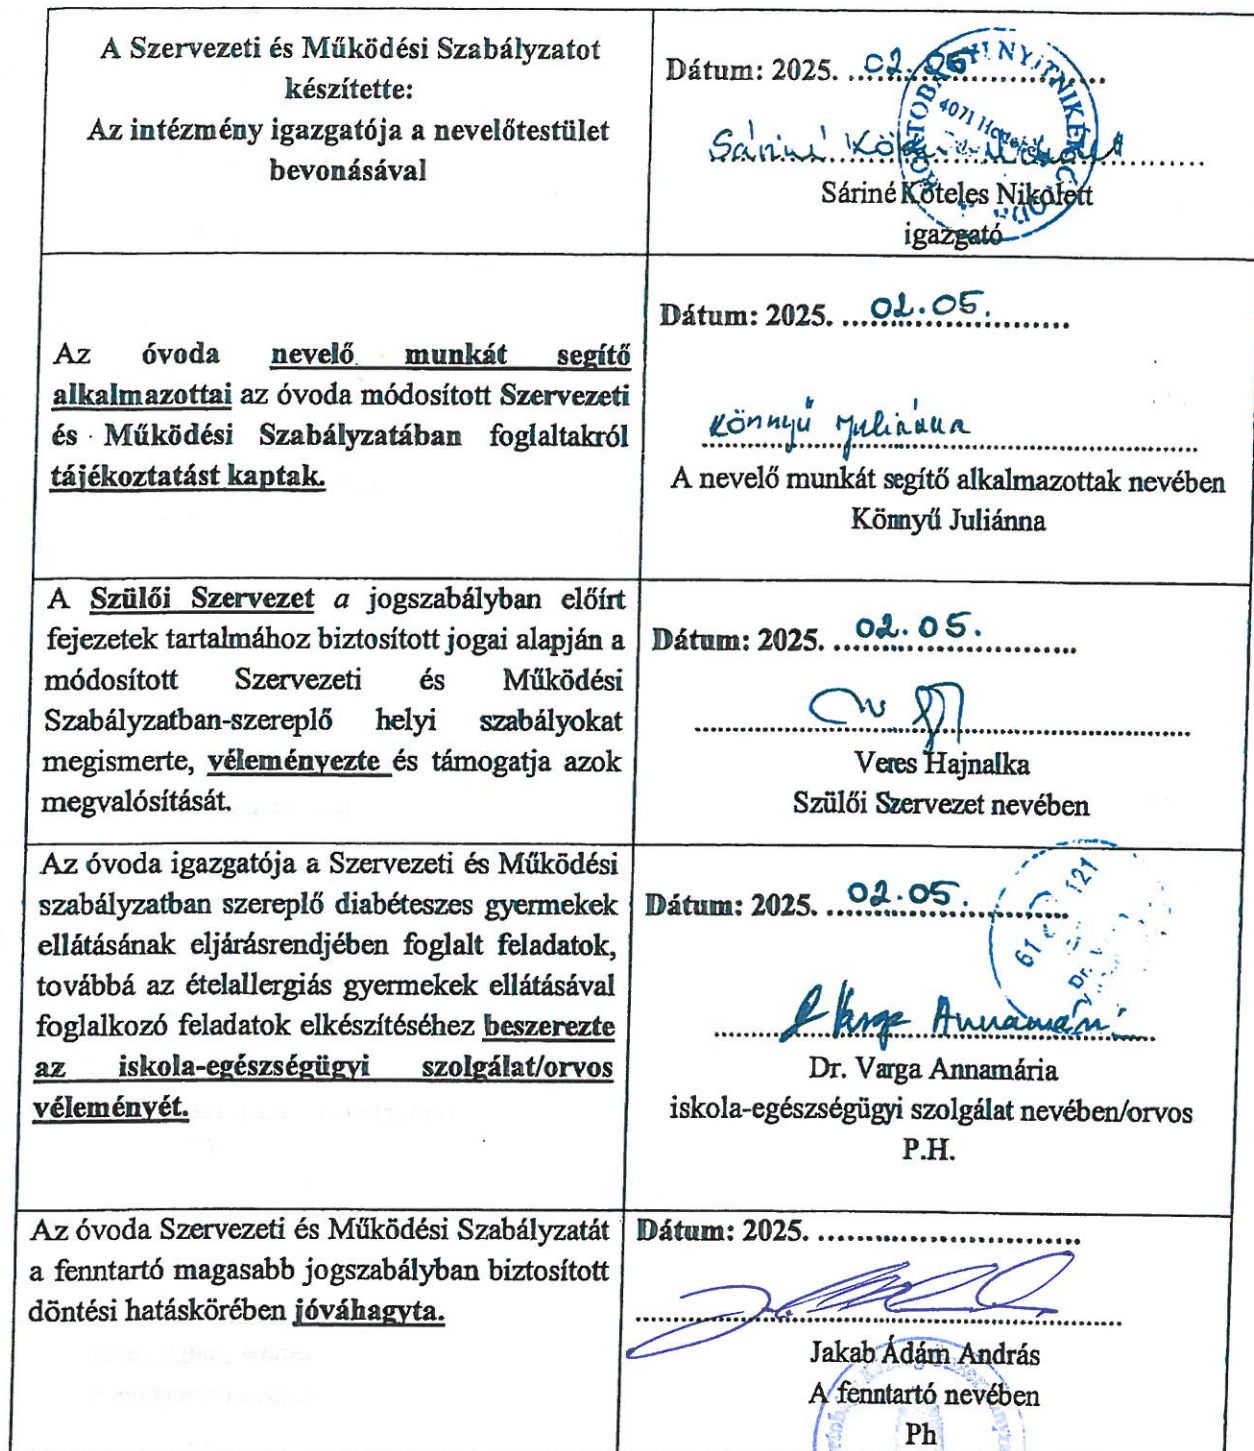 A Szervezeti és Működési Szabályzatot
készítette:
Az intézmény igazgatója a nevelőtestület
bevonásával
Dátum: 2025. 02.05
HORTOBÁGYI NYITNIKÉK ÓVODA
4071
Sáriné
Sáriné Köteles Nikolett
igazgató
Az óvoda nevelő munkát segítő
alkalmazottai az óvoda módosított Szervezeti
és Működési Szabályzatában foglaltakról
tájékoztatást kaptak.
Dátum: 2025. 02.05.
Könnyű Juliánna
A nevelő munkát segítő alkalmazottak nevében
Könnyű Juliánna
A Szülői Szervezet a jogszabályban előírt
fejezetek tartalmához biztosított jogai alapján a
módosított Szervezeti és Működési
Szabályzatban-szereplő helyi szabályokat
megismerte, véleményezte és támogatja azok
megvalósítását.
Dátum: 2025. 02.05.
Veres Hajnalka
Szülői Szervezet nevében
Az óvoda igazgatója a Szervezeti és Működési
szabályzatban szereplő diabéteszes gyermekek
ellátásának eljárásrendjében foglalt feladatok,
továbbá az ételallergiás gyermekek ellátásával
foglalkozó feladatok elkészítéséhez beszerezte
az iskola-egészségügyi szolgálat/orvos
véleményét.
Dátum: 2025. 02.05.
61 121
Dr.
Varga Annamári
Dr. Varga Annamária
iskola-egészségügyi szolgálat nevében/orvos
P.H.
Az óvoda Szervezeti és Működési Szabályzatát
a fenntartó magasabb jogszabályban biztosított
döntési hatáskörében jóváhagyta.
Dátum: 2025.
Jakab Ádám András
A fenntartó nevében
Ph